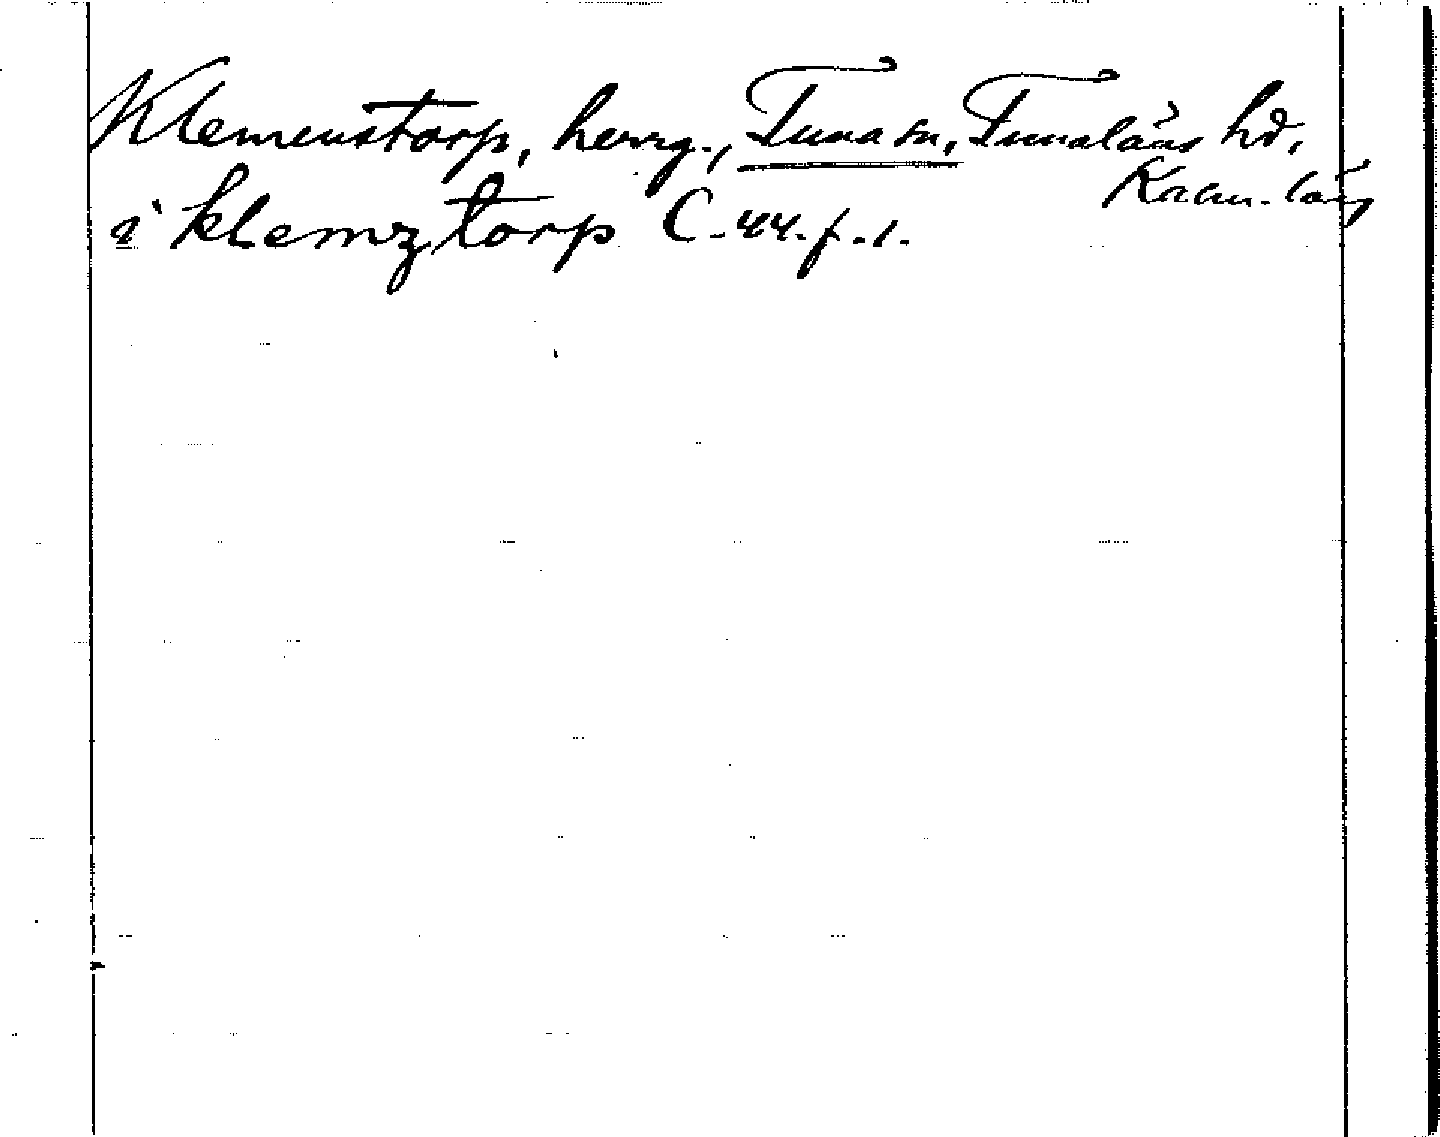 Klemenstorp, herrg., Tuna sn, Tunaläns hd,
Kalm. län
i klemz torp C-44.f.1.